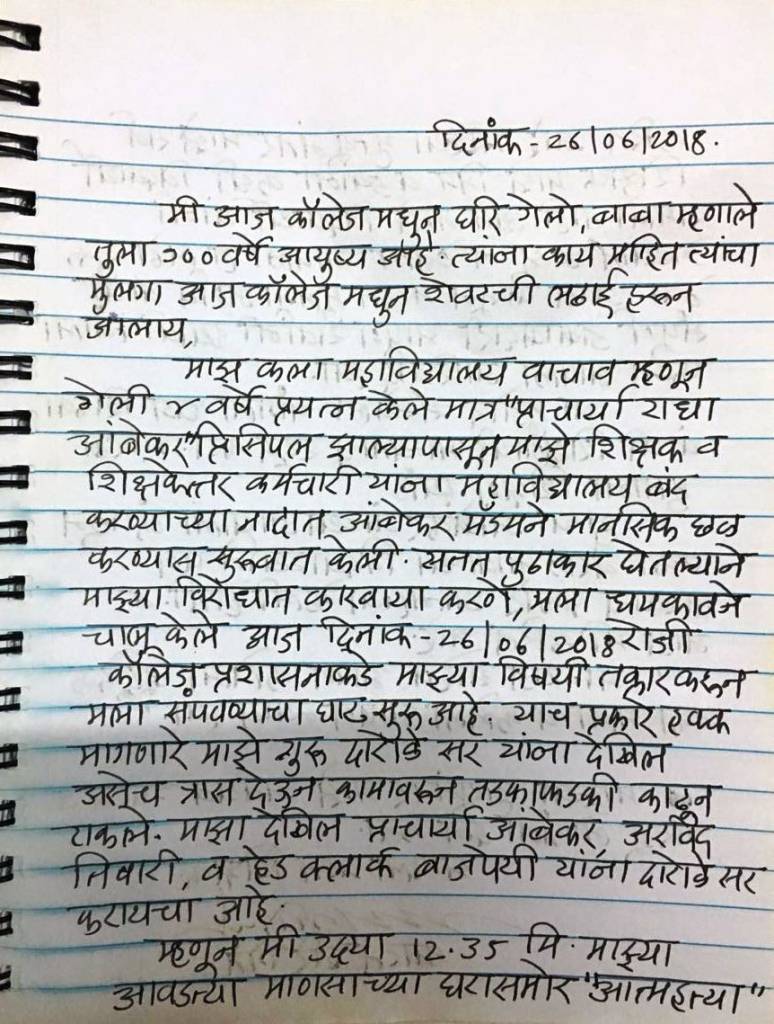 दिनांक - 26/06/2018.
मी आज कॉलेज मधून घरि गेलो, बाबा म्हणाले
तुला १०० वर्षे आयुष्य आहे. त्यांना काय माहित त्यांचा
मुलगा आज कॉलेज मधुन शेवटची लढाई हरून
आलाय,
माझ कला महाविद्यालय वाचाव म्हणून
गेली ४ वर्षे प्रयत्न केले मात्र "प्राचार्या राधा
आंबेकर" प्रिंसिपल झाल्यापासून माझे शिक्षक व
शिक्षकेत्तर कर्मचारी यांना महाविद्यालय बंद
करण्याच्या नादात आंबेकर मॅडमने मानसिक छळ
करण्यास सुरूवात केली. सतत पुढाकार घेतल्याने
माझ्या विरोधात कारवाया करणे, मला धमकावने
चालू केले आज दिनांक - 26/06/2018 रोजी
कॉलेज प्रशासनाकडे माझ्या विषयी तक्रार करून
मला संपवण्याचा घाट सुरू आहे. याच प्रकारे हक्क
मागणारे माझे गुरू दारोके सर यांना देखिल
असेच त्रास देउन कामावरून तडकाफडकी काढून
टाकले. माझा देखिल प्राचार्या आंबेकर, अरविंद
तिवारी, व हेड क्लार्क बाजपेयी यांना दारोके सर
करायचा आहे.
म्हणून मी उद्या 12.35 मि. माझ्या
आवडत्या माणसाच्या घरासमोर "आत्महत्या"